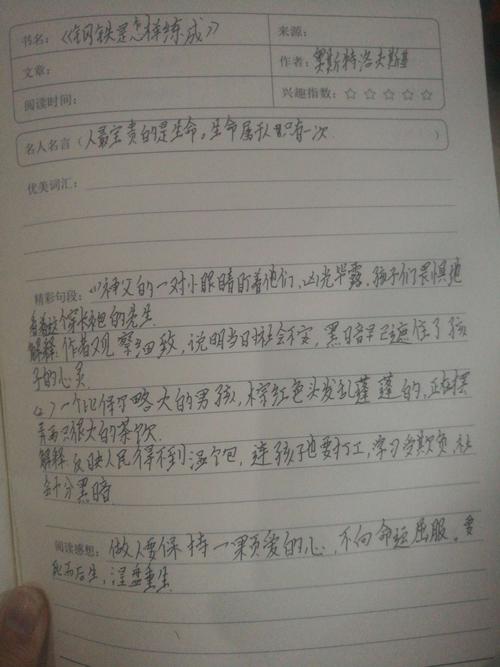 书名：《钢铁是怎样练成》
来源：
文章：
作者：奥斯特洛夫斯基
阅读时间：
兴趣指数：☆ ☆ ☆ ☆ ☆
名人名言（人最宝贵的是生命。生命属于人只有一次 ）
优美词汇：
精彩句段：(1)神父的一对小眼睛盯着他们，凶光毕露，孩子们畏惧地
看着这个穿长袍的先生
解释：作者观察细致，说明当时社会不安，黑暗早已遮住了孩
子的心灵
(2)一个比保尔略大的男孩，棕红色头发乱蓬蓬的，正在摆
弄两只很大的茶炊
解释：反映人民得不到温饱，连孩子也要打工，
会十分黑暗
阅读感想：做人要保持一颗爱的心，不向命运屈服。要
死而后生，涅盘重生